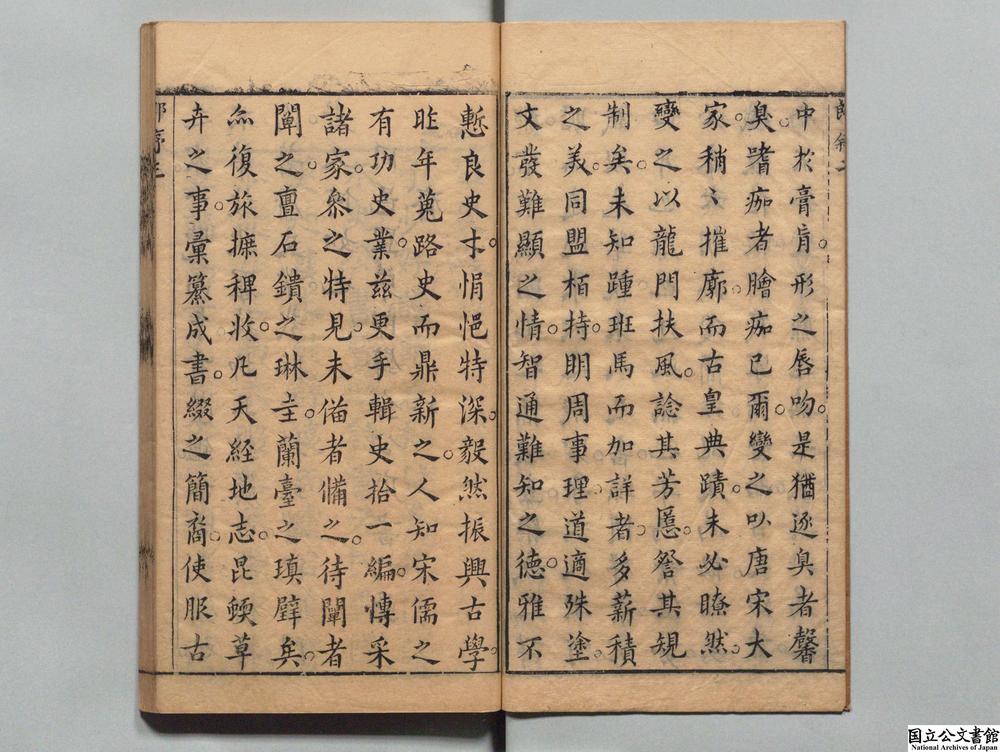 郎敘二
中於膏肓。形之唇吻。是猶逐臭者馨
臭。嗜痂者膾痂已爾。變之以唐宋大
家。稍〻摧廓。而古皇典蹟。未必瞭然。
變之以龍門扶風。諗其芳慝。詧其規
制矣。未知踵班馬而加詳者。多薪積
之美。同盟栢持。明周事理。道適殊塗。
文發難顯之情。智通難知之德。雅不
慙良史才。悁悒特深。毅然振興古學。
昨年蒐路史而鼎新之。人知宋儒之
有功史業。茲更手輯史拾一編。慱采
諸家。叅之特見。未偹者備之。待闡者
闡之。亶石鐀之琳圭。蘭臺之瑱璧矣。
尒復旅摭稗收。凡天経地志。昆蝡草
卉之事。彙纂成書。綴之簡裔。使服古
郎序三
国立公文書館
National Archives of Japan